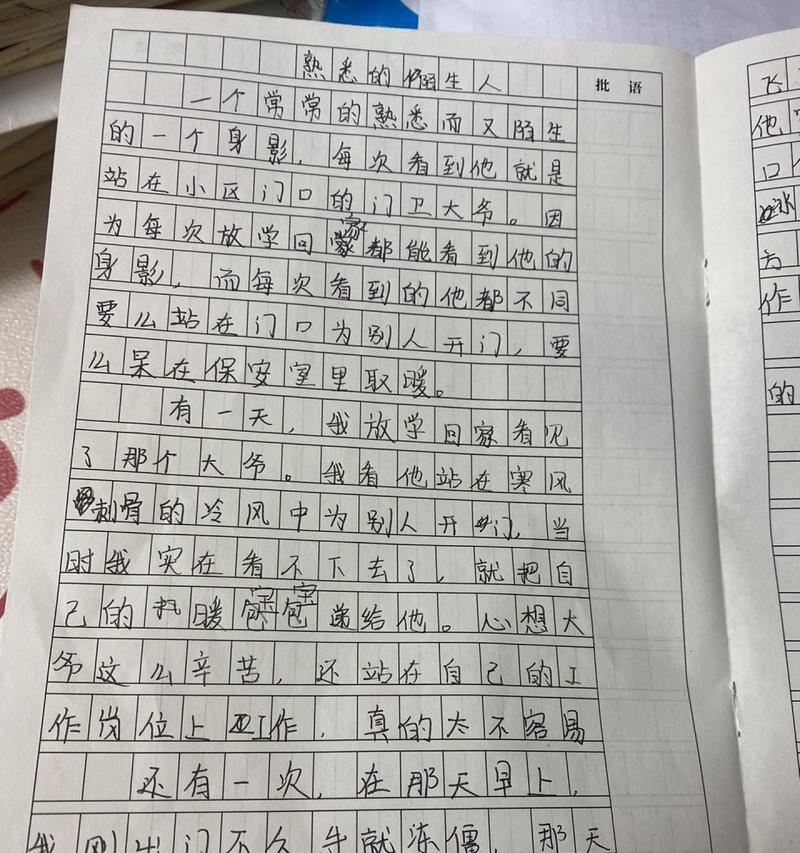 熟悉的陌生人
批语
一个常常的熟悉而又陌生
的一个身影，每次看到他就是
站在小区门口的门卫大爷。因
为每次放学回家都能看到他的
身影，而每次看到的他都不同
要么站在门口为别人开门，要
么呆在保安室里取暖。
有一天，我放学回家看见
了那个大爷。我看他站在寒风
刺骨的冷风中为别人开门，当
时我实在看不下去了，就把自
己的扎暖宝宝递给他。心想大
爷这么辛苦，还站在自己的工
作岗位上工作，真的太不容易
还有一次，在那天早上，
我刚出门不久手就冻僵，那天
飞
他
口
冰
方
作
的